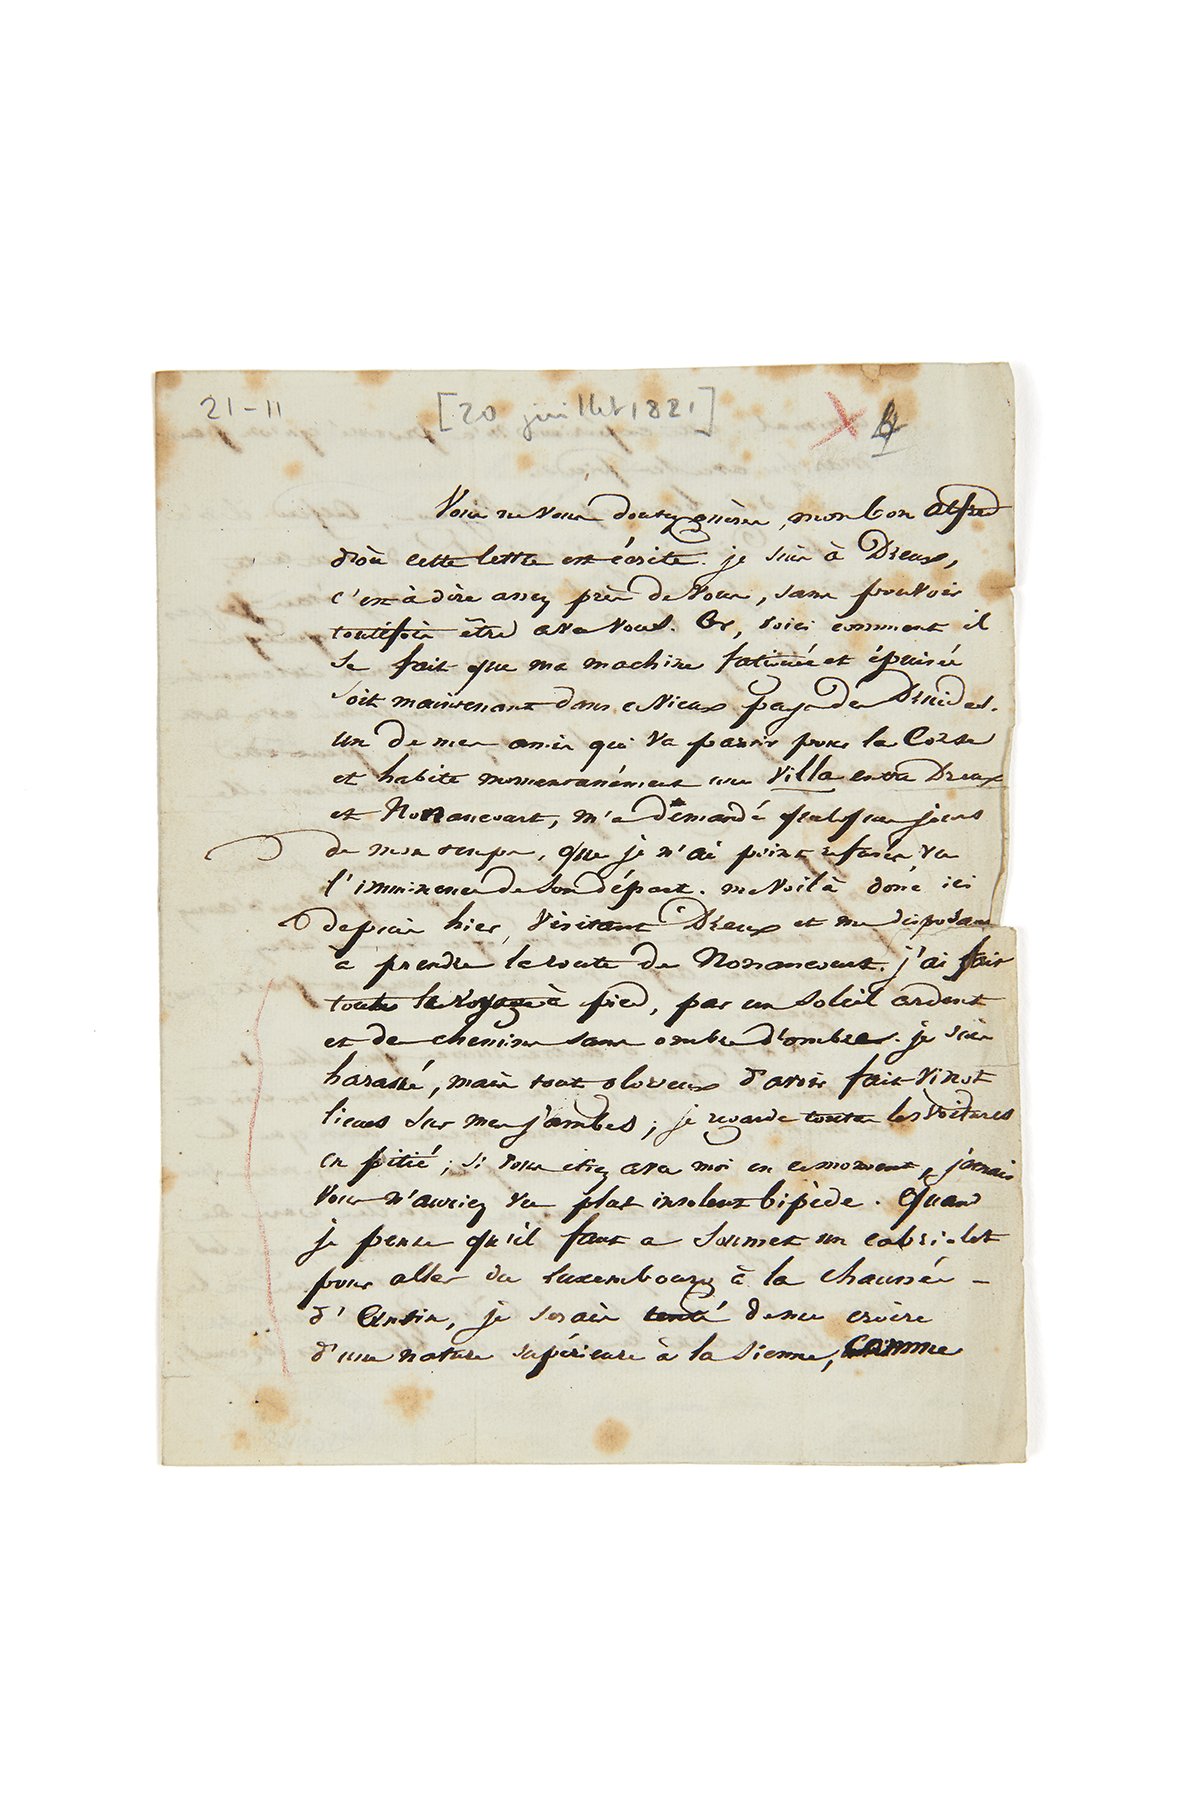 21-11 [20 juillet 1821] X 4
Vous ne vous doutez guères, mon bon Alfred
d'où cette lettre est écrite. je suis à Dreux,
c'est à dire assez près de vous, sans pouvoir
toutefois être avec vous. Or, voici comment il
se fait que ma machine fatiguée et épuisée
soit maintenant dans ce vieux pays des Druides.
un de mes amis qui va partir pour la Corse
et habite momentanément une villa entre Dreux
et Nonancourt, m'a demandé quelques jours
de mon temps, que je n'ai point refusés vu
l'imminence de son départ. me voilà donc ici
depuis hier, visitant Dreux et me disposant
à prendre la route de Nonancourt. j'ai fait
tout le voyage à pied, par un soleil ardent
et des chemins sans ombre d'ombre. je suis
harassé, mais tout glorieux d'avoir fait vingt
lieues sur mes jambes ; je regarde toutes les voitures
en pitié ; si vous étiez avec moi en ce moment, jamais
vous n'auriez vu plus insolent bipède. Quand
je pense qu'il faut à Soumet un cabriolet
pour aller du Luxembourg à la chaussée-
d'Antin, je serais tenté de me croire
d'une nature supérieure à la sienne, comme